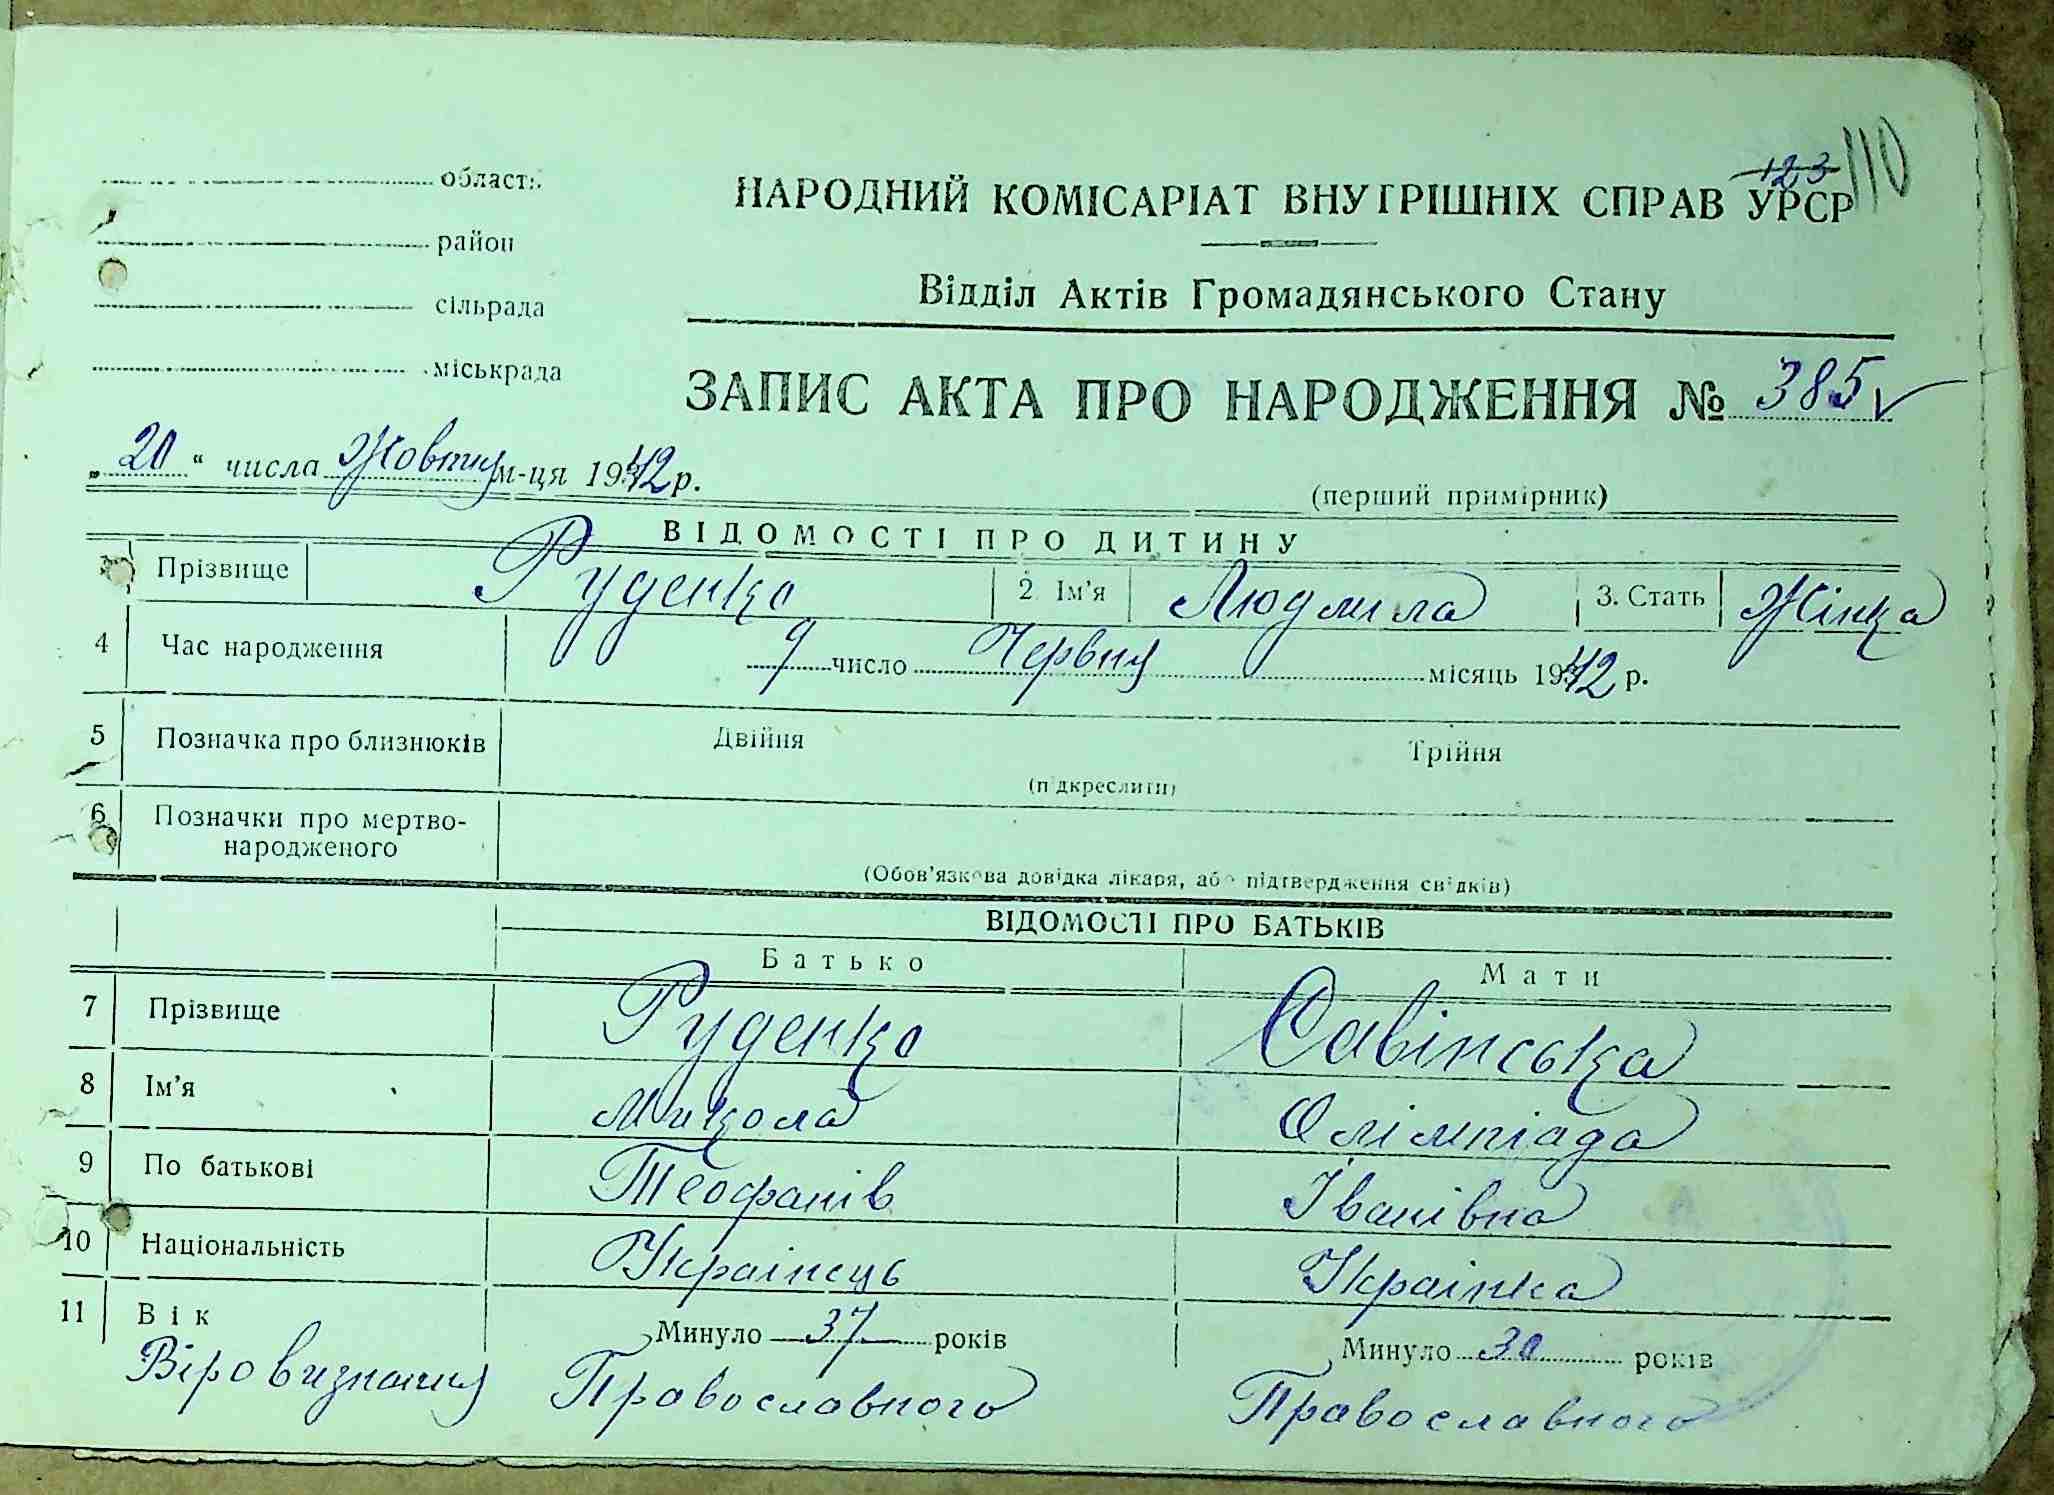 123 110
област:
район
сільрада
міськрада
НАРОДНИЙ КОМІСАРІАТ ВНУТРІШНІХ СПРАВ УРСР
Відділ Актів Громадянського Стану
ЗАПИС АКТА ПРО НАРОДЖЕННЯ № 385
„20“ числа Жовтня м-ця 1942 р.
(перший примірник)
ВІДОМОСТІ ПРО ДИТИНУ
Прізвище Руденко 2. Ім'я Людмила 3. Стать Жінка
4 Час народження 9 число Червня місяць 1942 р.
5 Позначка про близнюків Двійня Трійня
(підкреслити)
6 Позначки про мертво-
народженого
(Обов'язкова довідка лікаря, або підтвердження свідків)
ВІДОМОСТІ ПРО БАТЬКІВ
Батько Мати
7 Прізвище Руденко Савінська
8 Ім'я Микола Олімпіада
9 По батькові Теофанів Іванівна
10 Національність Украінець Украінка
11 Вік Минуло 37 років Минуло 30 років
Віровизнання Православного Православного